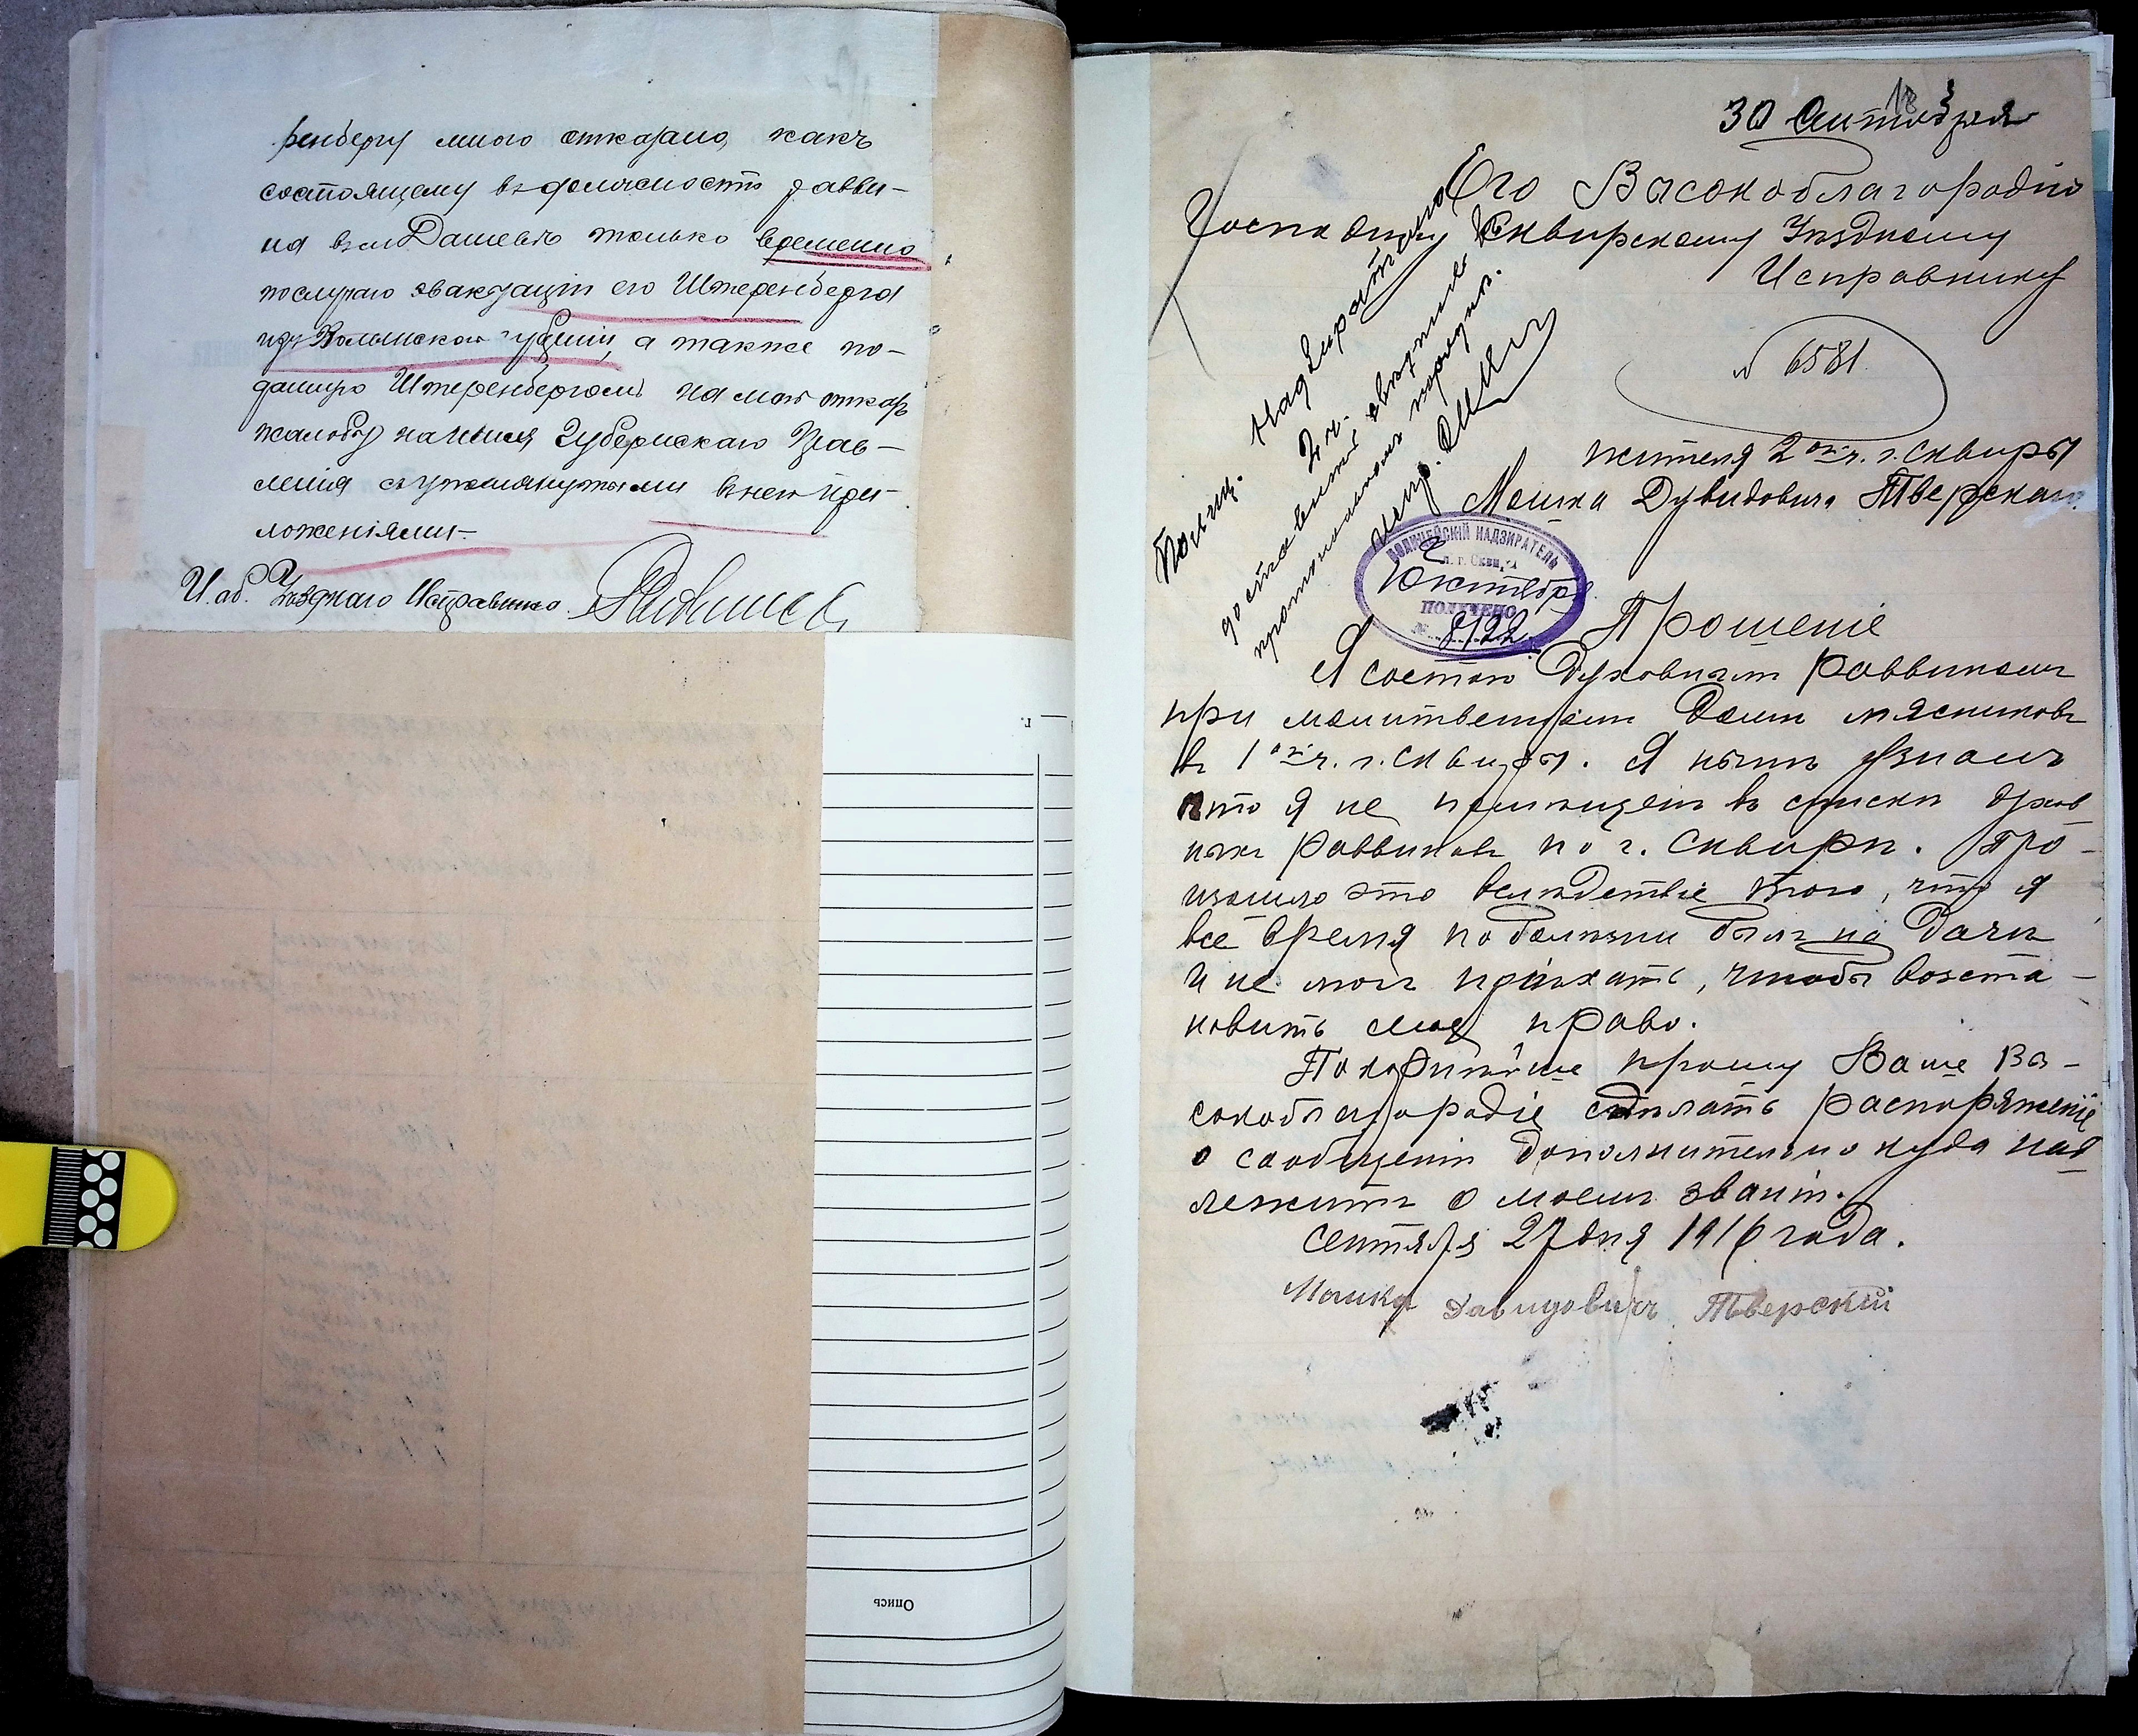 ренбергу мною отказано, какъ
состоящему въ должности равви-
на въ м Дашевѣ только временно
по случаю эвакуаціи его Штеренберга
изъ Волынской губерніи, а также по-
данную Штеренбергомъ на мой отказъ
жалобу на имя Губернскаго Прав-
ленія съ упомянутыми въ ней при-
ложеніями.-
И. об. Уѣзднаго Исправника
Опись
18
30 Сентября
Его Высокоблагородію
Господину Сквирскому Уѣздному
Исправнику
№ 6581
жителя 2ой ч. г. Сквиры
Мошка Дувидовича Тверскаго.
Полиц. Надзирателю
2 ч.
доставить свѣдѣніе въ
протокольномъ порядкѣ.
Испр.
ПОЛИЦЕЙСКІЙ НАДЗИРАТЕЛЬ
г. Сквира
2
Октября
ПОЛУЧЕНО
№ 8122
Прошеніе
Я состою Духовнымъ Раввиномъ
при молитвенномъ Домѣ мясниковъ
въ 1ой ч. г. Сквиры. Я нынѣ узналъ
что я не помѣщенъ въ списки духов
ныхъ Раввиновъ по г. Сквирѣ. Про-
изошло это вслѣдствіе того, что я
все время по болѣзни былъ на Дачѣ
и не могъ пріѣхать, чтобы возста-
новить свое право.
Покорнѣйше прошу Ваше Вы-
сокоблагородіе сдѣлать распоряженіе
о сообщеніи дополнительно куда над
лежитъ о моемъ званіи.
Сентября 27 дня 1916 года.
Мошко Давидовичъ Тверскій